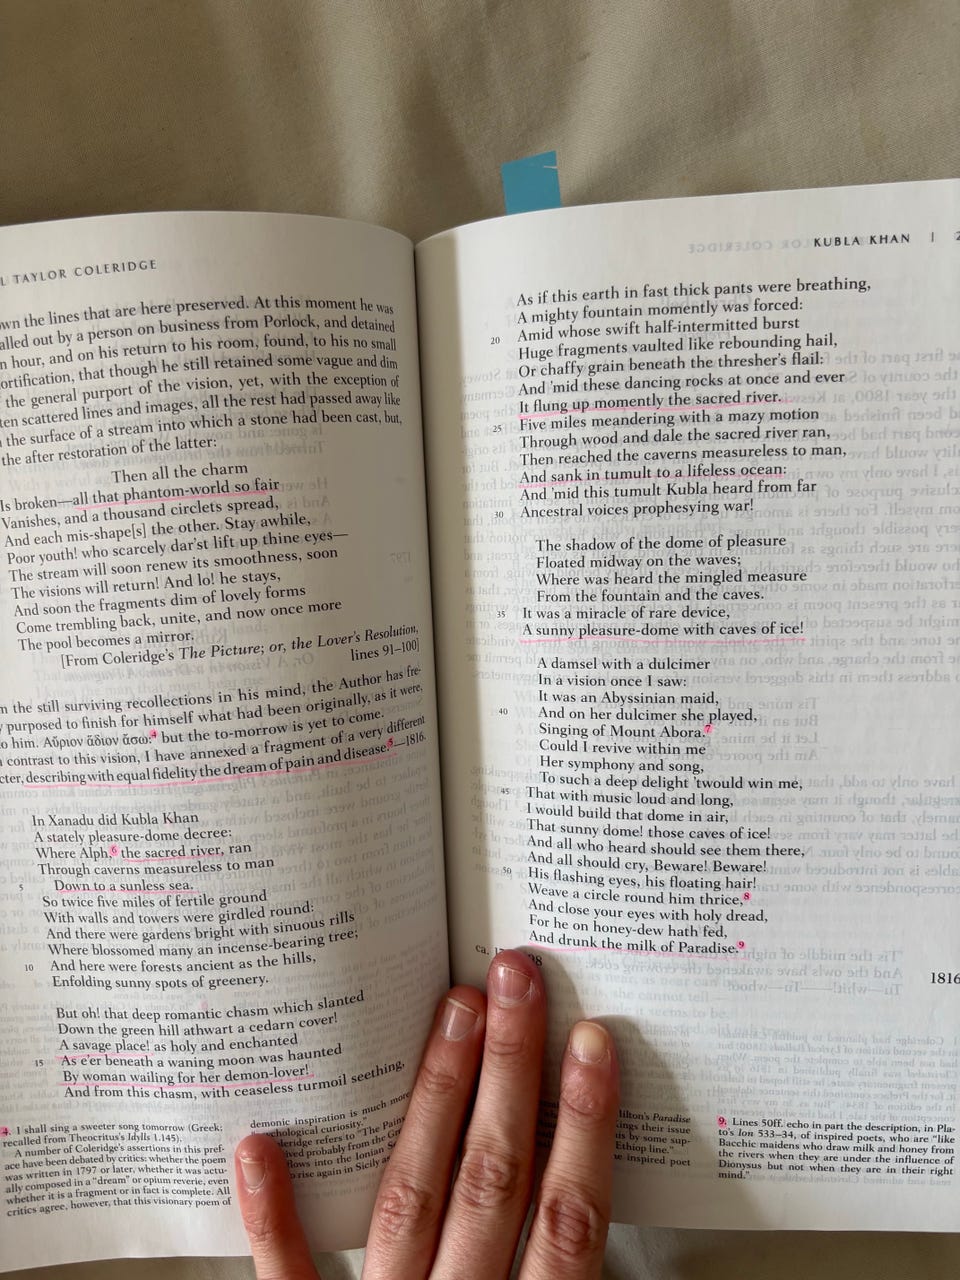 L TAYLOR COLERIDGE
wn the lines that are here preserved. At this moment he was
alled out by a person on business from Porlock, and detained
n hour, and on his return to his room, found, to his no small
ortification, that though he still retained some vague and dim
the general purport of the vision, yet, with the exception of
ten scattered lines and images, all the rest had passed away like
the surface of a stream into which a stone had been cast, but,
the after restoration of the latter:
Then all the charm
Is broken—all that phantom-world so fair
Vanishes, and a thousand circlets spread,
And each mis-shape[s] the other. Stay awhile,
Poor youth! who scarcely dar'st lift up thine eyes—
The stream will soon renew its smoothness, soon
The visions will return! And lo! he stays,
And soon the fragments dim of lovely forms
Come trembling back, unite, and now once more
The pool becomes a mirror.
[From Coleridge's The Picture; or, the Lover's Resolution,
lines 91–100]
m the still surviving recollections in his mind, the Author has fre-
y purposed to finish for himself what had been originally, as it were,
o him. Αὔριον ἅδιον ἄσω:4 but the to-morrow is yet to come.
contrast to this vision, I have annexed a fragment of a very different
cter, describing with equal fidelity the dream of pain and disease.5—1816.
In Xanadu did Kubla Khan
A stately pleasure-dome decree:
Where Alph,6 the sacred river, ran
Through caverns measureless to man
5 Down to a sunless sea.
So twice five miles of fertile ground
With walls and towers were girdled round:
And there were gardens bright with sinuous rills
Where blossomed many an incense-bearing tree;
10 And here were forests ancient as the hills,
Enfolding sunny spots of greenery.
But oh! that deep romantic chasm which slanted
Down the green hill athwart a cedarn cover!
A savage place! as holy and enchanted
15 As e'er beneath a waning moon was haunted
By woman wailing for her demon-lover!
And from this chasm, with ceaseless turmoil seething,
4. I shall sing a sweeter song tomorrow (Greek;
recalled from Theocritus's Idylls 1.145).
A number of Coleridge's assertions in this pref-
ace have been debated by critics: whether the poem
was written in 1797 or later, whether it was actu-
ally composed in a "dream" or opium reverie, even
whether it is a fragment or in fact is complete. All
critics agree, however, that this visionary poem of
demonic inspiration is much more
psychological curiosity."
leridge refers to "The Pains
ived probably from the Gr
flows into the Ionian S
rise again in Sicily as
KUBLA KHAN | 2
As if this earth in fast thick pants were breathing,
A mighty fountain momently was forced:
20 Amid whose swift half-intermitted burst
Huge fragments vaulted like rebounding hail,
Or chaffy grain beneath the thresher's flail:
And 'mid these dancing rocks at once and ever
It flung up momently the sacred river.
25 Five miles meandering with a mazy motion
Through wood and dale the sacred river ran,
Then reached the caverns measureless to man,
And sank in tumult to a lifeless ocean:
And 'mid this tumult Kubla heard from far
30 Ancestral voices prophesying war!
The shadow of the dome of pleasure
Floated midway on the waves;
Where was heard the mingled measure
From the fountain and the caves.
35 It was a miracle of rare device,
A sunny pleasure-dome with caves of ice!
A damsel with a dulcimer
In a vision once I saw:
It was an Abyssinian maid,
40 And on her dulcimer she played,
Singing of Mount Abora.7
Could I revive within me
Her symphony and song,
To such a deep delight 'twould win me,
45 That with music loud and long,
I would build that dome in air,
That sunny dome! those caves of ice!
And all who heard should see them there,
And all should cry, Beware! Beware!
50 His flashing eyes, his floating hair!
Weave a circle round him thrice,8
And close your eyes with holy dread,
For he on honey-dew hath fed,
And drunk the milk of Paradise.9
ca. 98 1816
ilton's Paradise
ings their issue
us by some sup-
Ethiop line."
e inspired poet
9. Lines 50ff. echo in part the description, in Pla-
to's Ion 533–34, of inspired poets, who are "like
Bacchic maidens who draw milk and honey from
the rivers when they are under the influence of
Dionysus but not when they are in their right
mind."